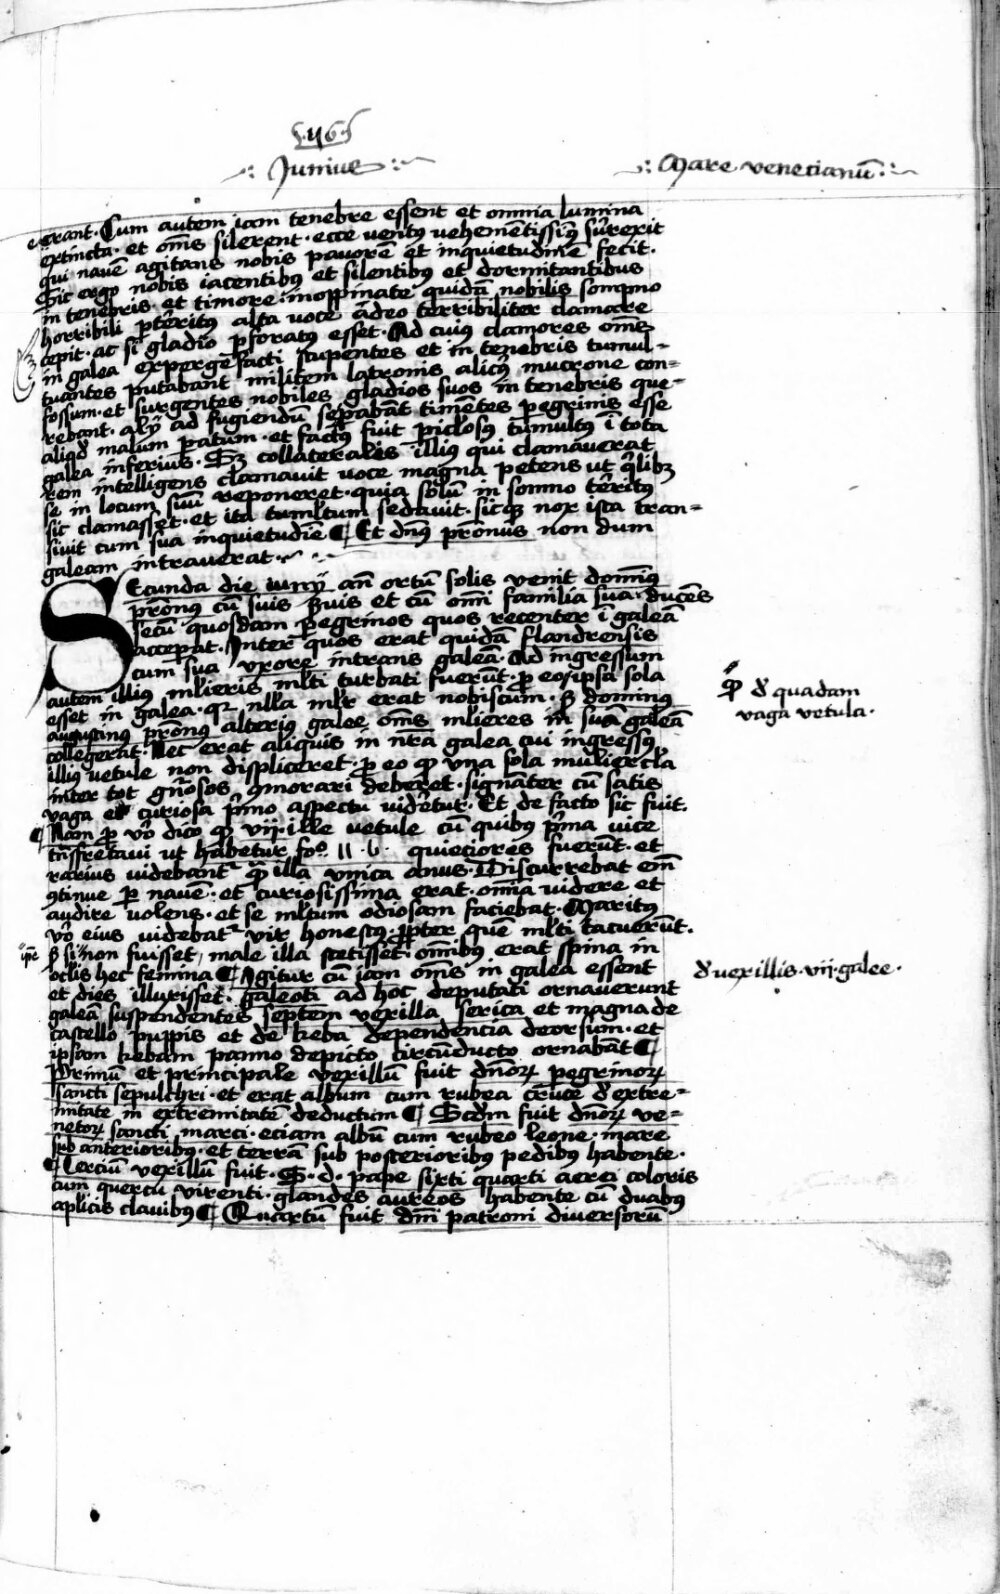 ·116·
Junius
Mare venetianū
erant · Cum autem iam tenebre essent et omnia lumina
extincta · et om̄s silerent · ecce ventus vehementissimꝰ surrexit
qui navē agitans nobis pavorē et inquietudinē fecit ·
Sic ergo nobis iacentibꝰ et silentibꝰ et dormitantibus
in tenebris et timore · inoppinate quidā nobilis sompno
horribili pterritꝰ alta voce adeo terribiliter clamare
cepit · ac si gladio pforatꝰ esset · Ad cuius clamores oms
in galea expergefacti stupentes et in tenebris tumul-
tuantes putabant militem latronis alicꝰ mucrone con=
fossum · et surgentes nobiles gladios suos in tenebris que-
rebant · alii ad fugiendū se pabāt timētes peregrinis esse
aliqd malum paratum · et factꝰ fuit piclosꝰ tumultꝰ ī tota
galea inferius · Sꝫ collaterales illius qui clamaverat
rem intelligens clamavit voce magna petens ut qlibꝫ
se in locum suū reponeret · quia solū in somno territꝰ
sic clamasset · et ita tumltum sedavit · sicqꝫ nox ista tran=
sivit cum sua inquietudine ¶ Et dnꝰ pronus non dum
galeam intraverat ·
Secunda die iunii an̄ ortū solis venit dominꝰ
pronꝰ cū suis suis et cū omni familia sua · ducēs
secū quosdam pegrinos quos recenter ī galeā
acceperat · Inter quos erat quidā flandrensis
cum sua uxore intrans galeā · Ad ingressum
autem illius mlieris mlti turbati fuerūt · p eo q ipsa sola
esset in galea · qr nlla mlr erat nobiscum · sꝫ dominus
augustinus pronus alterius galee oms mlieres in suā galeā
collegerat · Nec erat aliquis in nra galea cui ingressꝰ
illius vetule non displiceret · p eo qꝫ una sola muliercla
inter tot gnosos ꝯmorari deberet · signanter cū satis
vaga et curiosa pmo aspectu videretur · Et de facto sic fuit ·
¶ Nam p vo dico qꝫ vii · ille vetule cū quibus pma vice
trāsfretavi ut habetur fo · 11 · b · quieciores fuerūt · et
rarius videbant qꝫ illa unica anus · Discurrebat em̄
ꝯtinue p navē · et curiosissima erat · omia videre et
audire volens · et se mltum odiosam faciebat · Maritus
vo eius videbat vir honestꝰ · ppter quē mlti tacuerūt ·
ipe
sꝫ si non fuisset, male illa stetisset · omibus erat spina in
oclis hec femina ¶ Igitur cū iam oms in galea essent
et dies illuxisset · galeoti ad hoc deputati ornaverunt
galeā suspendentes septem vexilla serica et magna de
castello puppis et de keba dependencia deorsum · et
ipsam kebam panno depicto circūducto ornabāt ¶
Primū et principale vexillū fuit dnorꝫ pegrinorꝫ
sancti sepulchri · et erat album cum rubea cruce d extre=
mitate in extremitatē deductum ¶ Scdm fuit dnorꝫ ve=
netorꝫ sancti marci · eciam albū cum rubeo leone · mare
sub anterioribꝰ · et terrā sub posterioribus pedibus habente ·
¶ Tercium vexillū fuit · S · d · pape sixti quarti aerei coloris
cum quercu virenti · glandes aureos habente cū duabꝰ
aplicis clavibꝰ ¶ Quartū fuit dni patroni diversorū
d quadam
vaga vetula ·
d vexillis · vii · galee ·